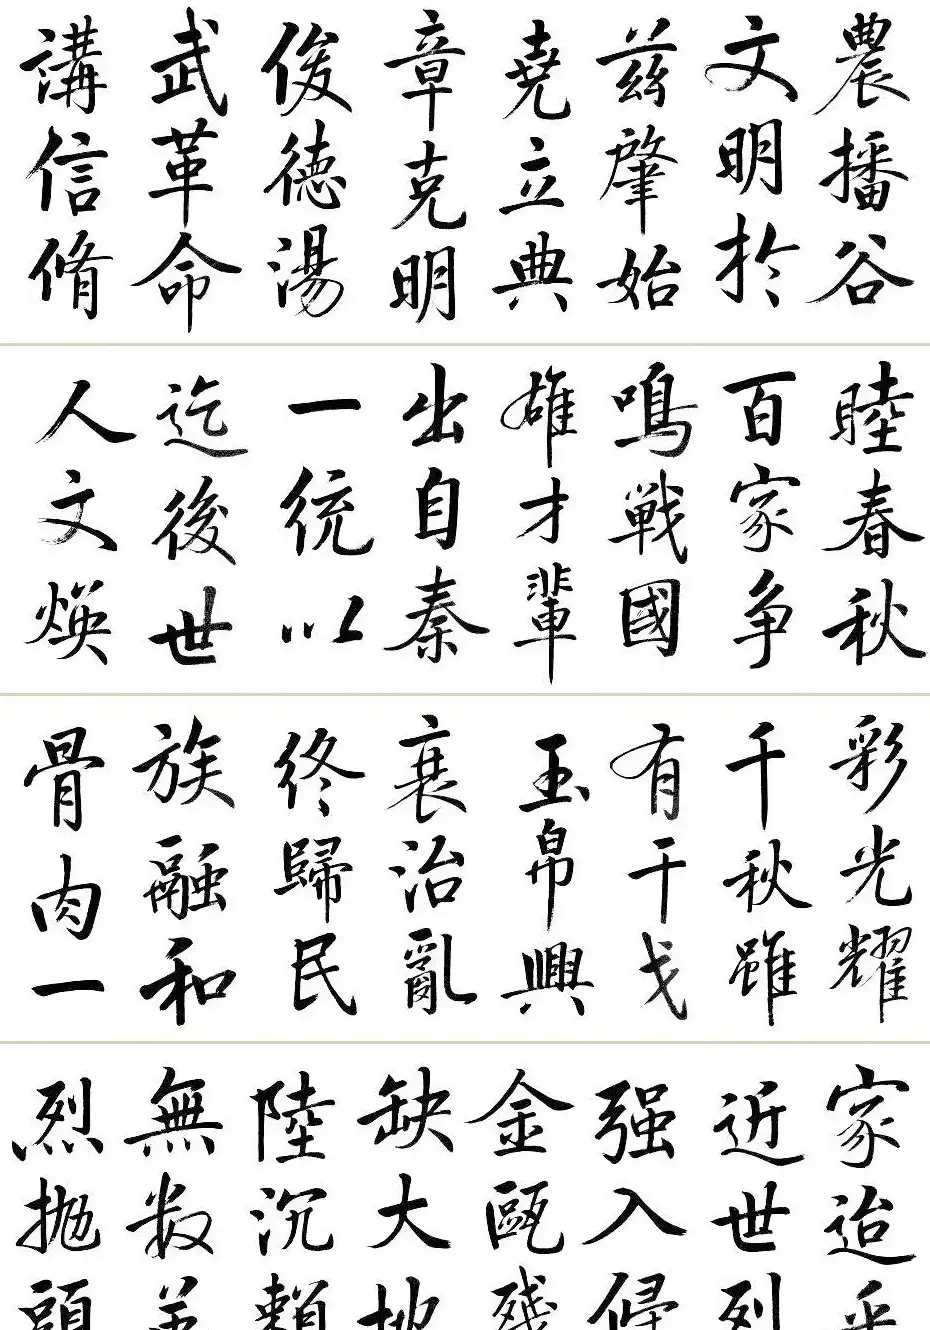 農播谷
文明於
兹肇始
堯立典
章克明
俊德湯
武革命
講信脩
睦春秋
百家争
鳴戰國
雄才輩
出自秦
一統以
迄後世
人文焕
彩光耀
千秋雖
有干戈
玉帛興
衰治亂
終歸民
族融和
骨肉一
家迨乎
近世列
强入侵
金甌殘
缺大地
陸沉賴
無数英
烈抛頭